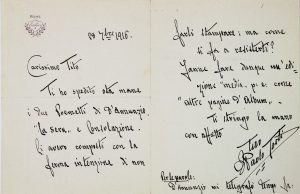 28 7bre 1916.
Carissimo Tito
Ti ho spedito sta mane
i due Poemetti di D'Annunzio
La sera, e Consolazione.
li avevo composti con la
ferma intenzione di non
farli stampare; ma come
si fa a resistere?
Fanne fare dunque un'edi-
zione "media", p. e. come
"altre pagine d'Album".
Ti stringo la mano
con affetto
Tuo
Paolo Tosti
D'Annunzio mi telegrafò